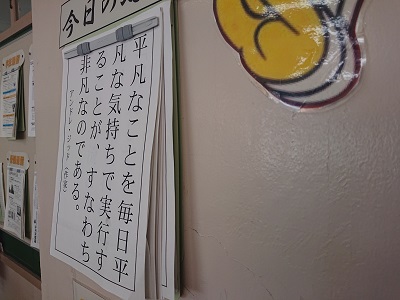 今日の
平凡なことを毎日平
凡な気持ちで実行す
ることが、すなわち
非凡なのである。
アンドレ・ジッド（作家）